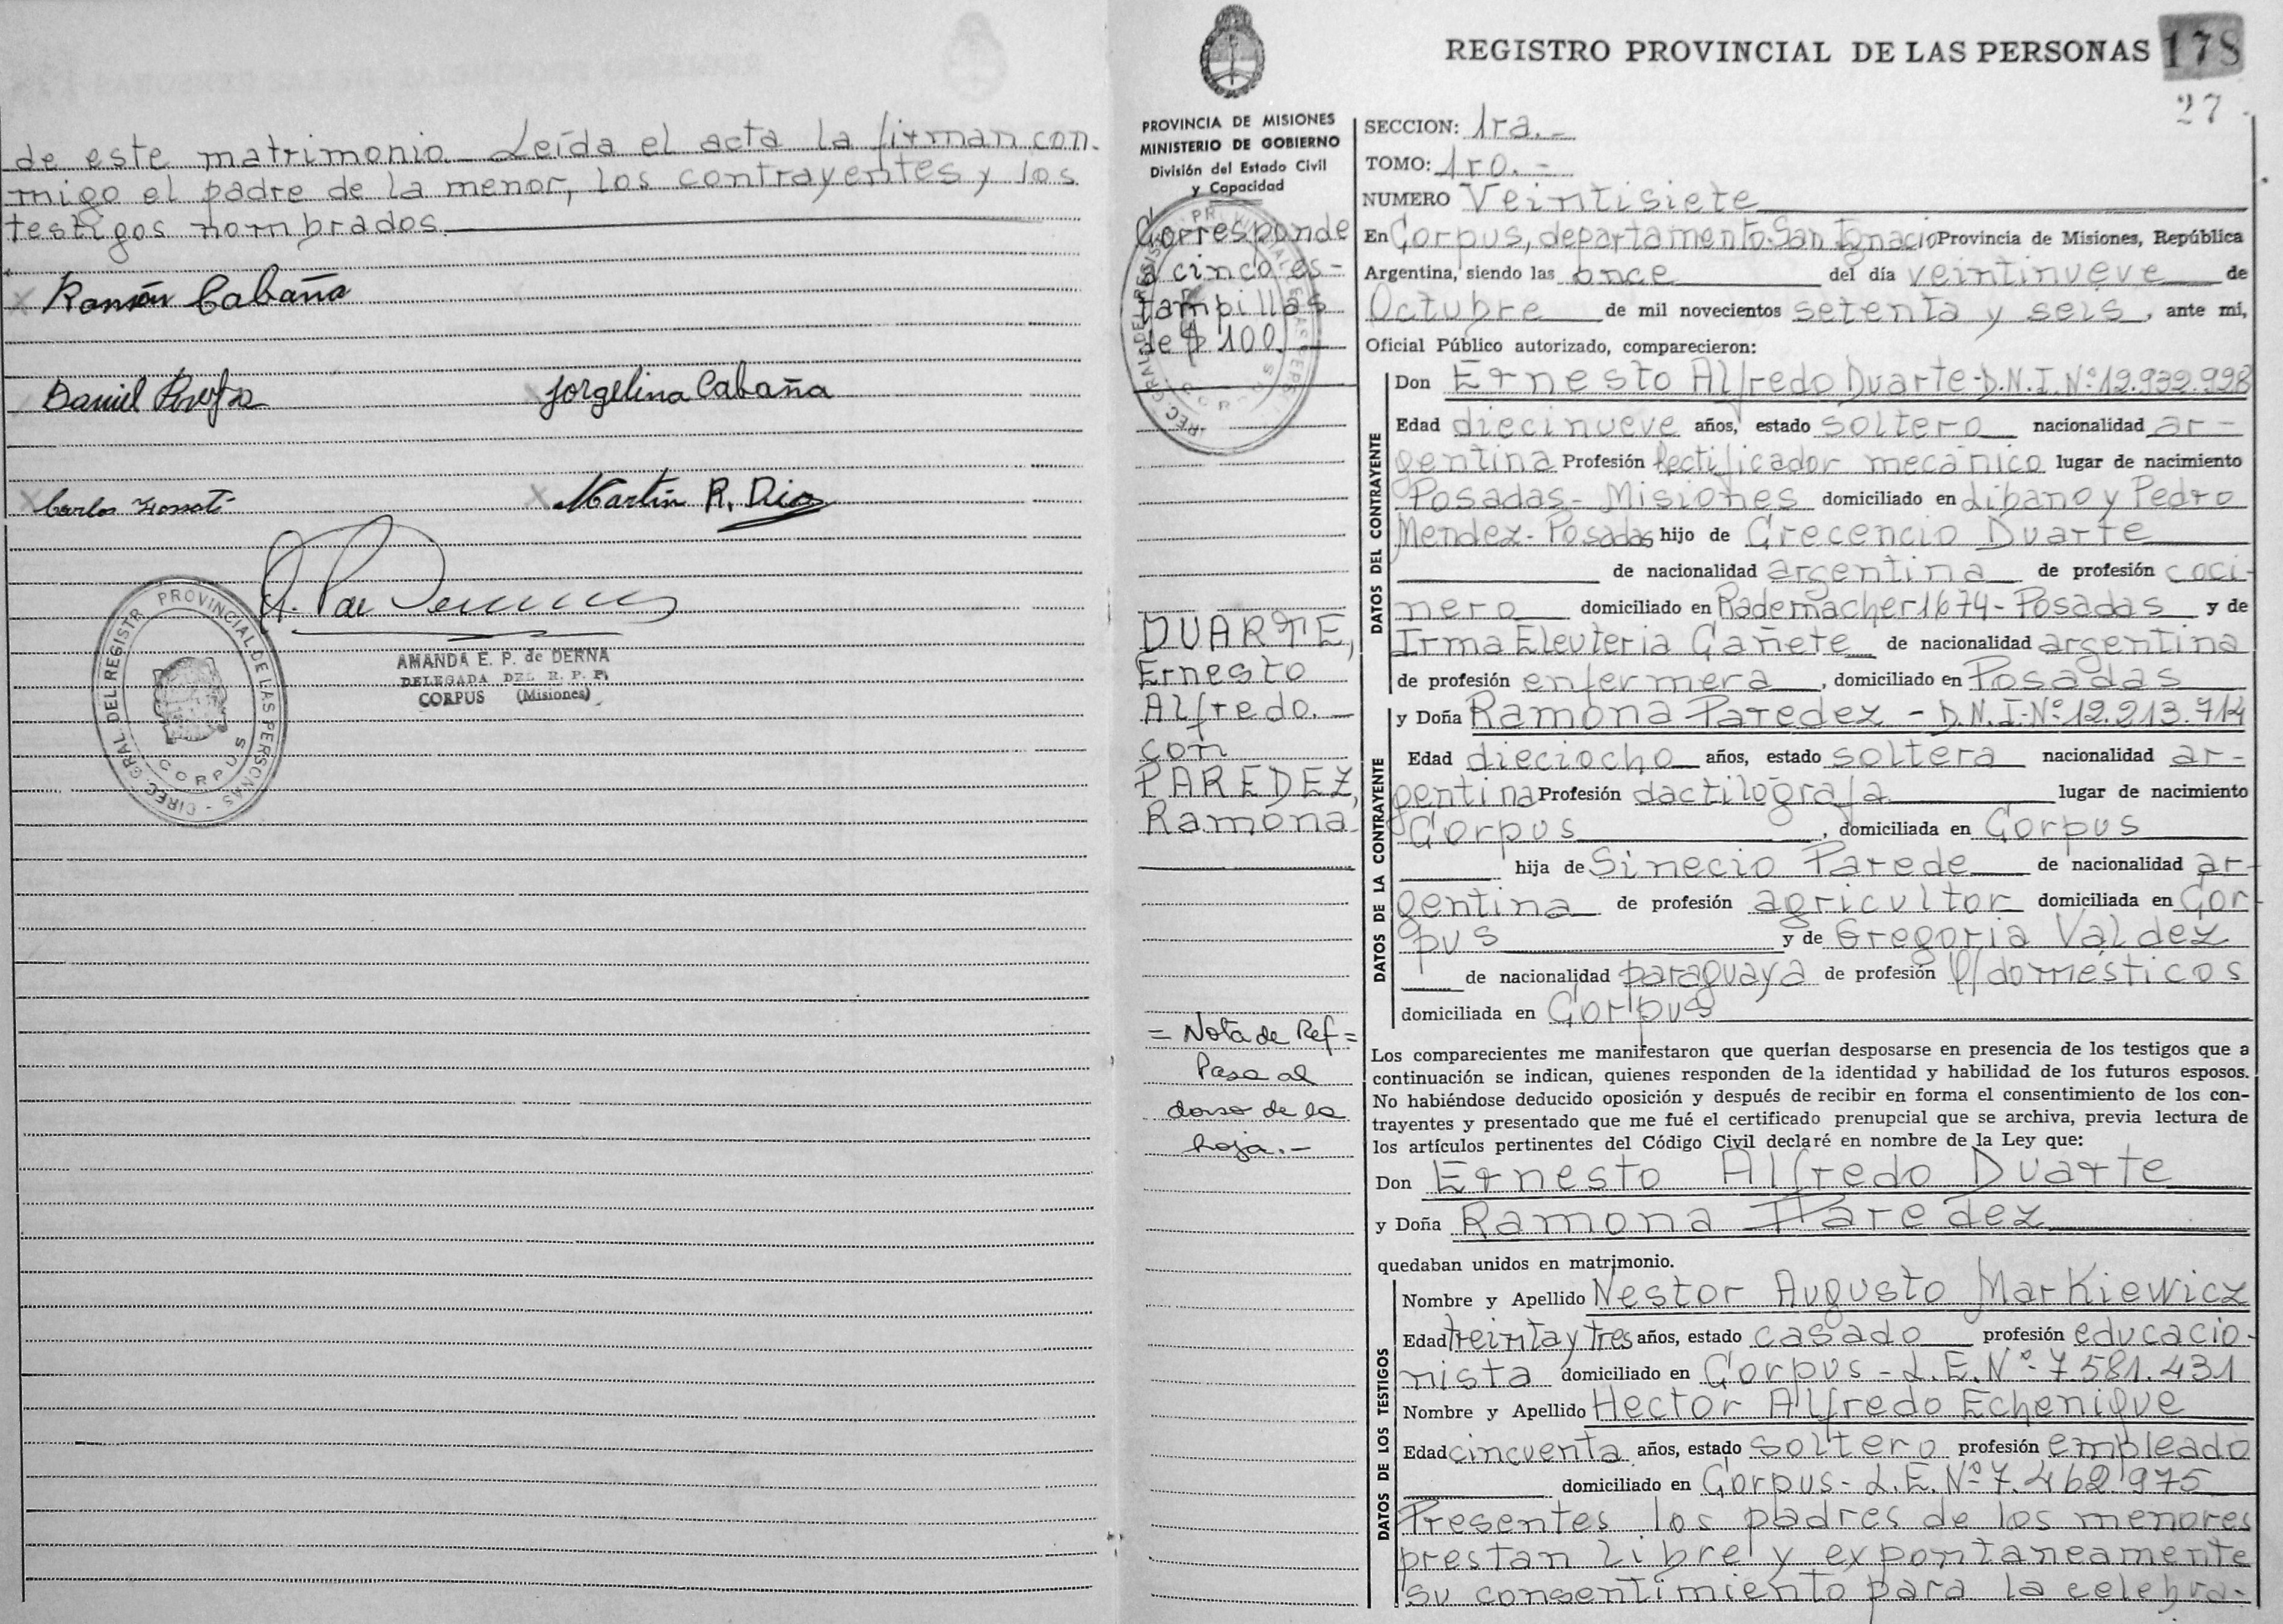 de este matrimonio. Leída el acta la firman con-
migo el padre de la menor, los contrayentes y los
testigos nombrados.
Ramón Cabaña
Daniel
Jorgelina Cabaña
Carlos
Martin R. Dio
PROVINCIAL DE LAS PERSONAS - DIREC. GRAL DEL REGISTR
CORPUS
AMANDA E. P. de DERNA
DELEGADA DEL R. P. P.
CORPUS (Misiones)
REGISTRO PROVINCIAL DE LAS PERSONAS 178
27
PROVINCIA DE MISIONES
MINISTERIO DE GOBIERNO
División del Estado Civil
y Capacidad
Corresponde
a cinco es-
tampillas
de $ 100.
DUARTE,
Ernesto
Alfredo.
con
PAREDEZ,
Ramona
= Nota de Ref =
Pasa al
dorso de la
hoja.-
SECCION: 1ra.-
TOMO: 1ro.-
NUMERO Veintisiete
En Corpus, departamento San Ignacio Provincia de Misiones, República
Argentina, siendo las once del día veintinueve de
Octubre de mil novecientos setenta y seis, ante mi,
Oficial Público autorizado, comparecieron:
DATOS DEL CONTRAYENTE
Don Ernesto Alfredo Duarte-D.N.I.Nº12.932.998
Edad diecinueve años, estado soltero nacionalidad ar-
gentina Profesión Rectificador mecánico lugar de nacimiento
Posadas- Misiones domiciliado en Libano y Pedro
Mendez- Posadas hijo de Crecencio Duarte
de nacionalidad argentina de profesión coci-
nero domiciliado en Rademacher 1674- Posadas y de
Irma Eleuteria Cañete de nacionalidad argentina
de profesión enfermera, domiciliado en Posadas
DATOS DE LA CONTRAYENTE
y Doña Ramona Paredez - D.N.I.-Nº12.213.714
Edad dieciocho años, estado soltera nacionalidad ar-
gentina Profesión dactilógrafa lugar de nacimiento
Corpus, domiciliada en Corpus
hija de Sinecio Parede de nacionalidad ar-
gentina de profesión agricultor domiciliada en Cor-
pus y de Gregoria Valdez
de nacionalidad paraguaya de profesión q/domésticos
domiciliada en Corpus
Los comparecientes me manifestaron que querían desposarse en presencia de los testigos que a
continuación se indican, quienes responden de la identidad y habilidad de los futuros esposos.
No habiéndose deducido oposición y después de recibir en forma el consentimiento de los con-
trayentes y presentado que me fué el certificado prenupcial que se archiva, previa lectura de
los artículos pertinentes del Código Civil declaré en nombre de la Ley que:
Don Ernesto Alfredo Duarte
y Doña Ramona Paredez
quedaban unidos en matrimonio.
DATOS DE LOS TESTIGOS
Nombre y Apellido Nestor Augusto Markiewicz
Edad treinta y tres años, estado casado profesión educacio-
nista domiciliado en Corpus - L.E.Nº-7581.431
Nombre y Apellido Hector Alfredo Echenique
Edad cincuenta años, estado soltero profesión empleado
domiciliado en Corpus- L.E.Nº7.462.975
Presentes los padres de los menores
prestan libre y expontaneamente
su consentimiento para la celebra-